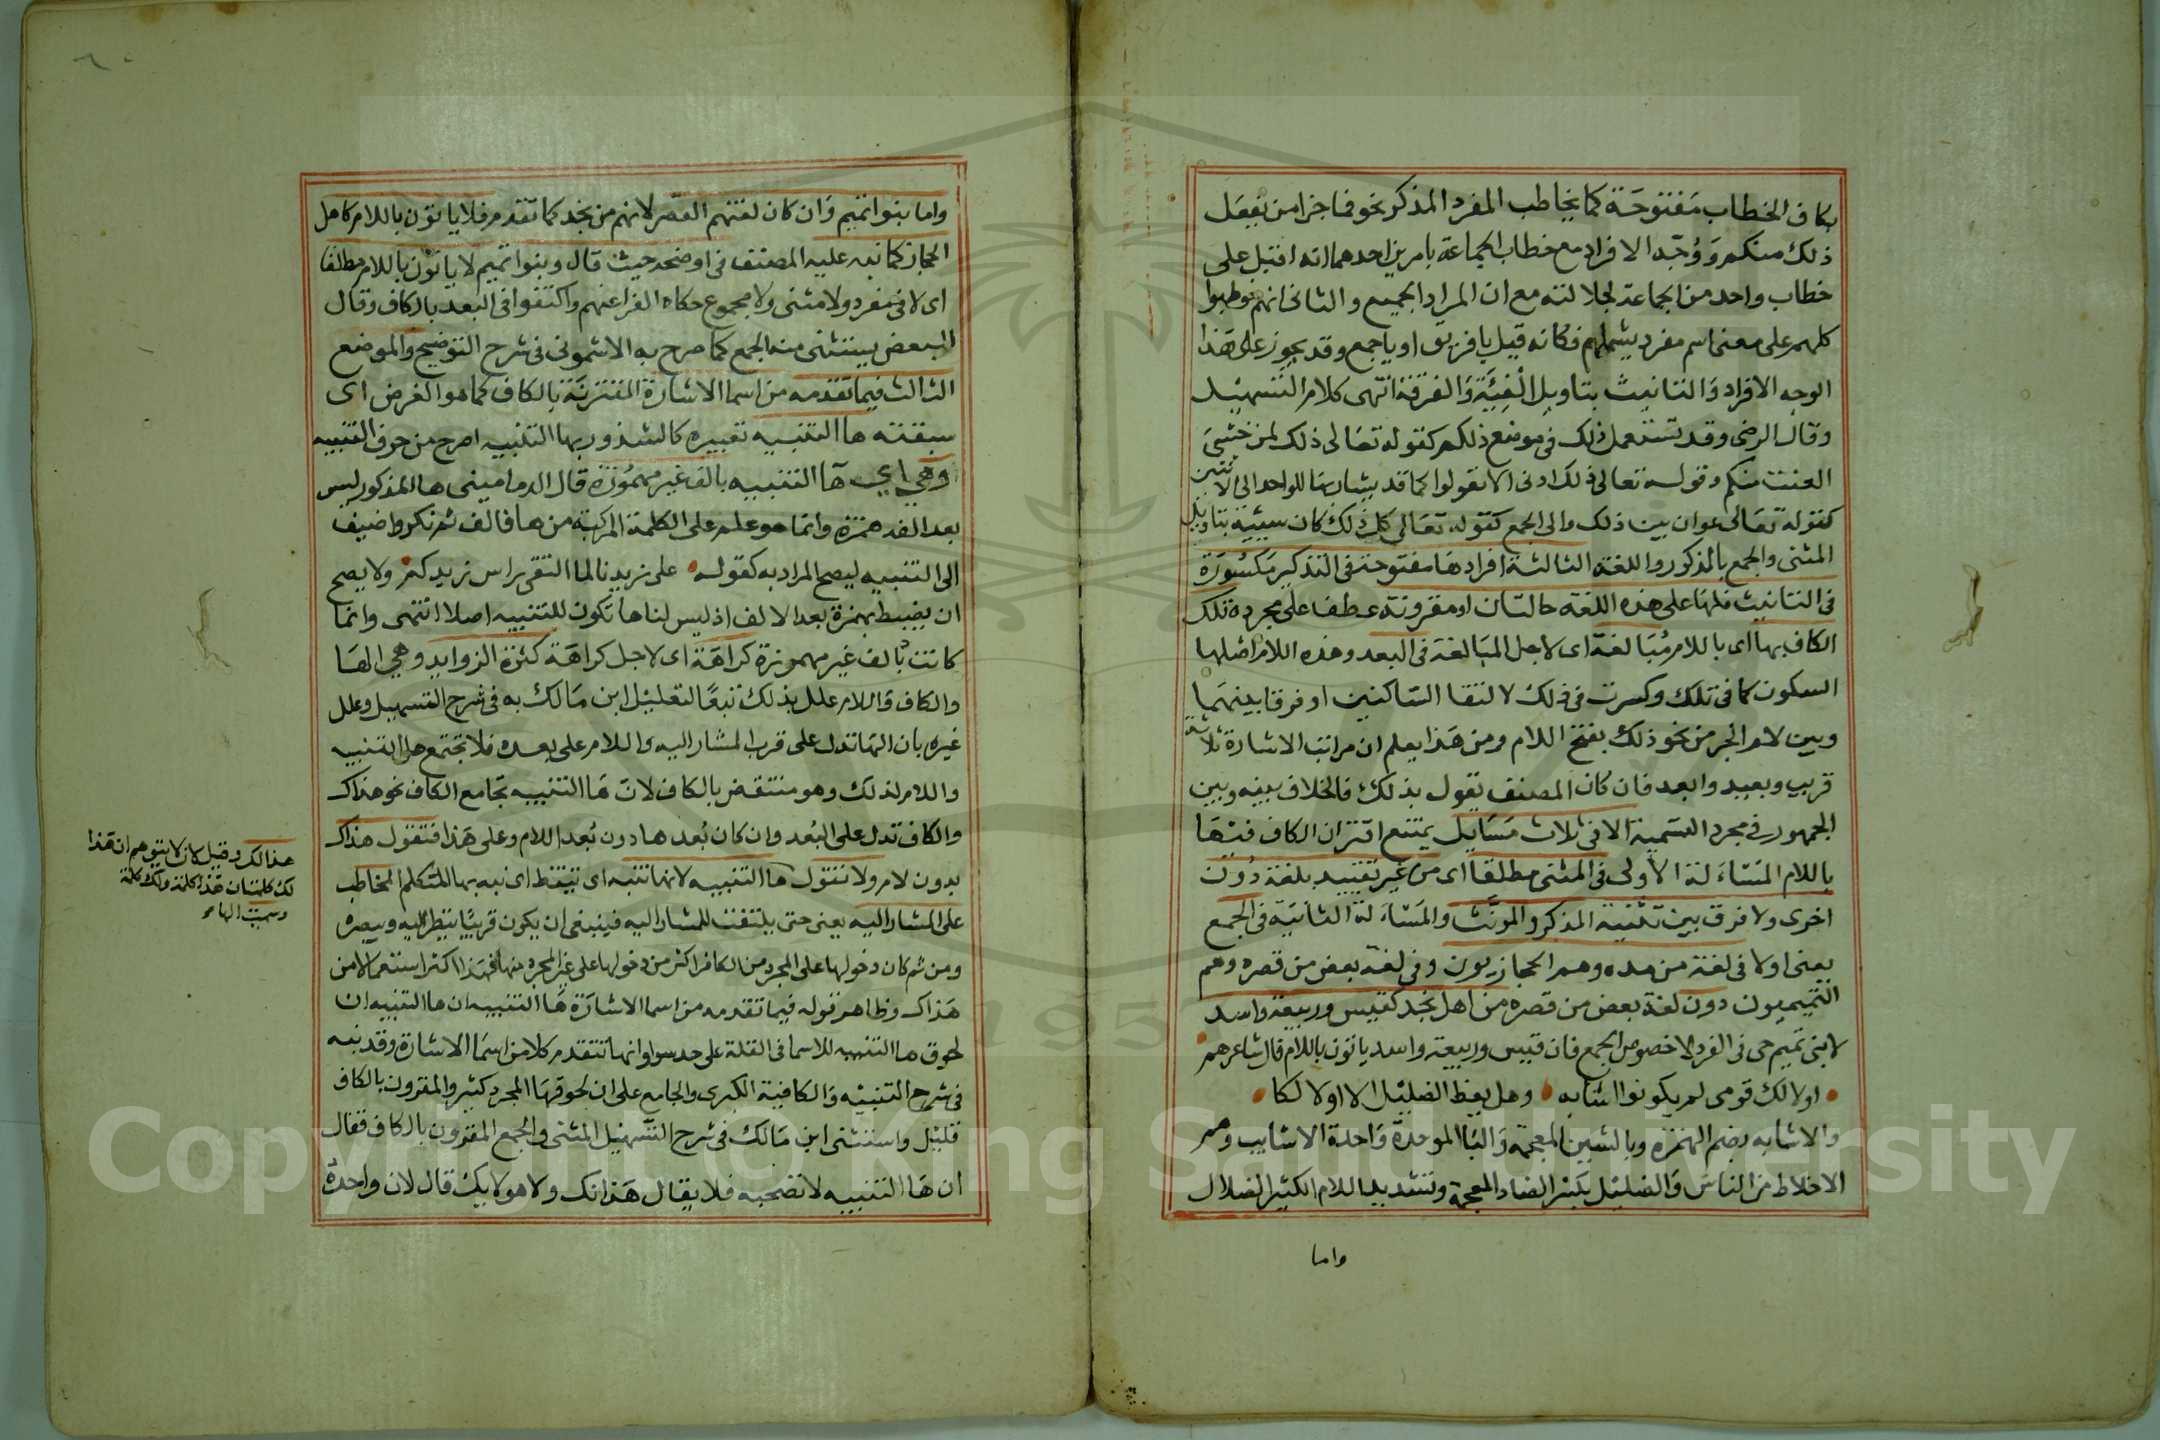 بكاف الخطاب مفتوحة كما يخاطب المفرد المذكر نحو فما جزا من يفعل
ذلك منكم ووجه الافراد مع خطاب الجماعة بامرين احدهما انه اقبل على
خطاب واحد من الجماعة لجلالته مع ان المراد الجميع والثانى انهم خوطبوا
كلهم على معنى اسم مفرد يشملهم فكانه قيل يا فريق او يا جمع وقد يجوز على هذا
الوجه الافراد والتانيث بتاويل الفئية والفرقة انتهى كلام التسهيل
وقال الرضى وقد تستعمل ذلك فى موضع ذلكم كقوله تعالى ذلك لمن خشى
العنت منكم وقوله تعالى ذلك ادنى الا تعولوا كما قد يشار بها للواحد الى الاثنين
كقوله تعالى عوان بين ذلك والى الجمع كقوله تعالى كل ذلك كان سيئة بتاويل
المثنى والجمع بالمذكور واللغة الثالثة افرادها مفتوحة فى التذكير مكسورة
فى التانيث فلها على هذه اللغة حالتان او مقرونة عطف على مجردة تلك
الكاف بها اى باللام مبالغة اى لاجل المبالغة فى البعد وهذه اللام اصلها
السكون كما فى تلك وكسرت فى ذلك لالتقا الساكنين او فرقا بينهما
وبين لام الجر من نحو ذلك بفتح اللام ومن هذا يعلم ان مراتب الاشارة ثلاثة
قريب وبعيد وابعد فان كان المصنف يقول بذلك فالخلاف بينه وبين
الجمهور فى مجرد التسمية الا فى ثلاث مسايل يمتنع اقتران الكاف فيها
باللام المسالة الاولى فى المثنى مطلقا اى من غير تقييد بلغة دون
اخرى ولا فرق بين تثنية المذكر والمونث والمسالة الثانية فى الجمع
يعنى اولا فى لغة من مده وهم الحجازيون وفى لغة بعض من قصره وهم
التميميون دون لغة بعض من قصره من اهل نجد كقيس وربيعة واسد
لا بنى تميم حى فى الفرد لا خصوص الجمع فان قيس وربيعة واسد ياتون باللام قال شاعرهم
اولالك قومى لم يكونوا اشابه وهل يعظ الضليل الا اولالكا
والاشابه بضم الهمزه وبالشين المعجمة والبا الموحدة واحدة الاشايب وهم
الاخلاط من الناس والضليل بكسر الضاد المعجمة وتشديد اللام الكثير الضلال
واما
واما بنوا تميم وان كان لغتهم القصر لانهم من نجد كما تقدم فلا ياتون باللام كاهل
الحجاز كما نبه عليه المصنف فى اوضحه حيث قال وبنوا تميم لا ياتون باللام مطلقا
اى لا فى مفرد ولا مثنى ولا مجموع حكاه الفرا عنهم واكتفوا فى البعد بالكاف وقال
البعض يستثنى منه الجمع كما صرح به الاشمونى فى شرح التوضيح والموضع
الثالث فيما تقدمه من اسما الاشارة المقترنة بالكاف كما هو الغرض اى
سبقته ها التنبيه تعبيره كالشذور بها التنبيه اصرح من حرف التنبيه
وهى اى ها التنبيه بالف غير مهموزة قال الدمامينى ها المذكور ليس
بعد الفه همزة وانما هو علم على الكلمة المركبة من ها فالف ثم نكر واضيف
الى التنبيه ليصح المراد به كقوله على زيدنا لما التقى براس زيدكم ولا يصح
ان يضبط بهمزة بعد الالف اذ ليس لنا هاء تكون للتنبيه اصلا انتهى وانما
كانت بالف غير مهموزة كراهة اى لاجل كراهة كثرة الزوايد وهى الها
والكاف واللام علل بذلك تبعا لتعليل ابن مالك به فى شرح التسهيل وعلل
غيره بان الها تدل على قرب المشار اليه واللام على بعده فلا تجتمع ها التنبيه
واللام لذلك وهو منتقض بالكاف لان ها التنبيه تجامع الكاف نحو هذاك
والكاف تدل على البعد وان كان بعدها دون بعد اللام وعلى هذا فتقول هذاك
بدون لام ولا تقول ها التنبيه لانها تنبه اى تيقظ اى نبه بها المتكلم المخاطب
على المشار اليه يعنى حتى يلتفت للمشار اليه فينبغى ان يكون قريبا ينظر اليه ويبصره
ومن ثم كان دخولها على المجرد من الكاف اكثر من دخولها على غير المجرد منها فهذا اكثر استعمالا من
هذاك وظاهر قوله فيما تقدمه من اسما الاشارة ها التنبيه ان ها التنبيه ان
لحوق ها التنبيه للاسما فى القلة على حد سوا وانها تتقدم كلا من اسما الاشارة وقد نبه
فى شرح التنبيه والكافية الكبرى والجامع على ان لحوقها المجرد كثير والمقرون بالكاف
قليل واستثنى ابن مالك فى شرح التسهيل المثنى والجمع المقرون بالكاف فقال
ان ها التنبيه لا تصحبه فلا يقال هذانك ولا هولايك قال لان واحدة
هذالك وقيل كان لا يتوهم ان هذا
لك كلمتان هذا كلمة ولك كلمة
وسميت الها
Copyright © King Saud University
1957